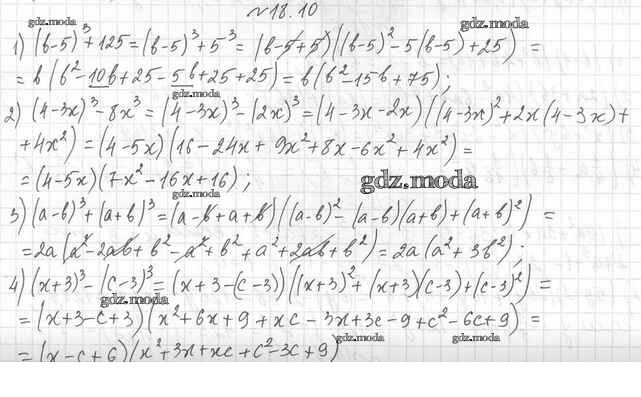 №18.10
gdz.moda
gdz.moda
1) (b-5)³+125=(b-5)³+5³=(b-5+5)((b-5)²-5(b-5)+25) =
= b(b²-10b+25-5b+25+25)=b(b²-15b+75);
gdz.moda
2) (4-3x)³-8x³=(4-3x)³-(2x)³=(4-3x-2x)((4-3x)²+2x(4-3x)+
+4x²)=(4-5x)(16-24x+9x²+8x-6x²+4x²)=
=(4-5x)(7x²-16x+16);
gdz.moda
gdz.moda
3) (a-b)³+(a+b)³=(a-b+a+b)((a-b)²-(a-b)(a+b)+(a+b)²) =
=2a(a²-2ab+b²-a²+b²+a²+2ab+b²)=2a(a²+3b²);
4) (x+3)³-(c-3)³=(x+3-(c-3))((x+3)²+(x+3)(c-3)+(c-3)²) =
gdz.moda
=(x+3-c+3)(x²+6x+9+xc-3x+3c-9+c²-6c+9) =
=(x-c+6)(x²+3x+xc+c²-3c+9)
gdz.moda
gdz.moda